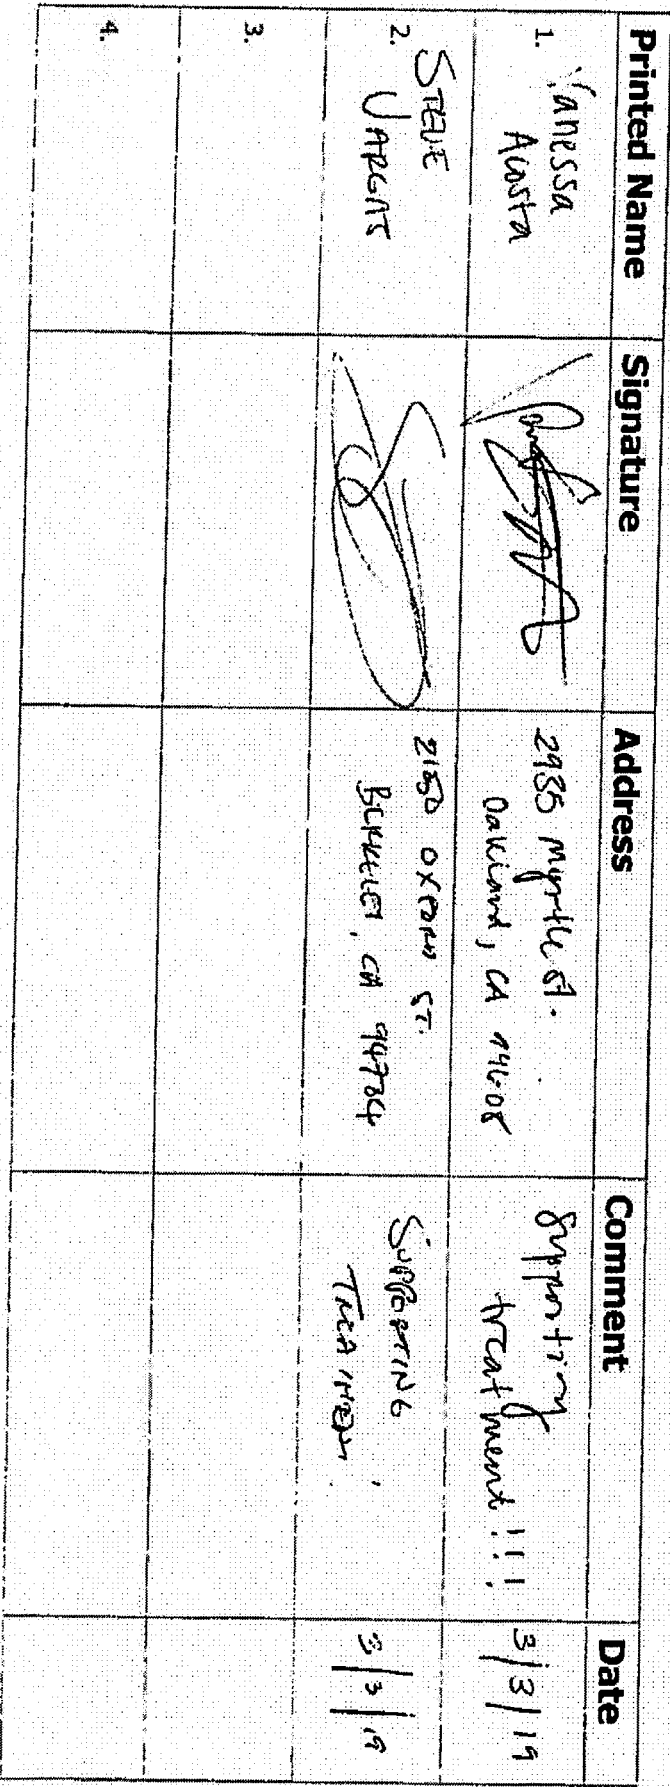 Printed Name Signature Address Comment Date
1. Vanessa
Acosta
2985 Myrtle st.
Oakland, CA 94608
Supporting
treatment!!!
3/3/19
2. STEVE
VARGAS
ST.
BERKELEY, CA
SUPPORTING
TREATMENT
3/3/19
3.
4.